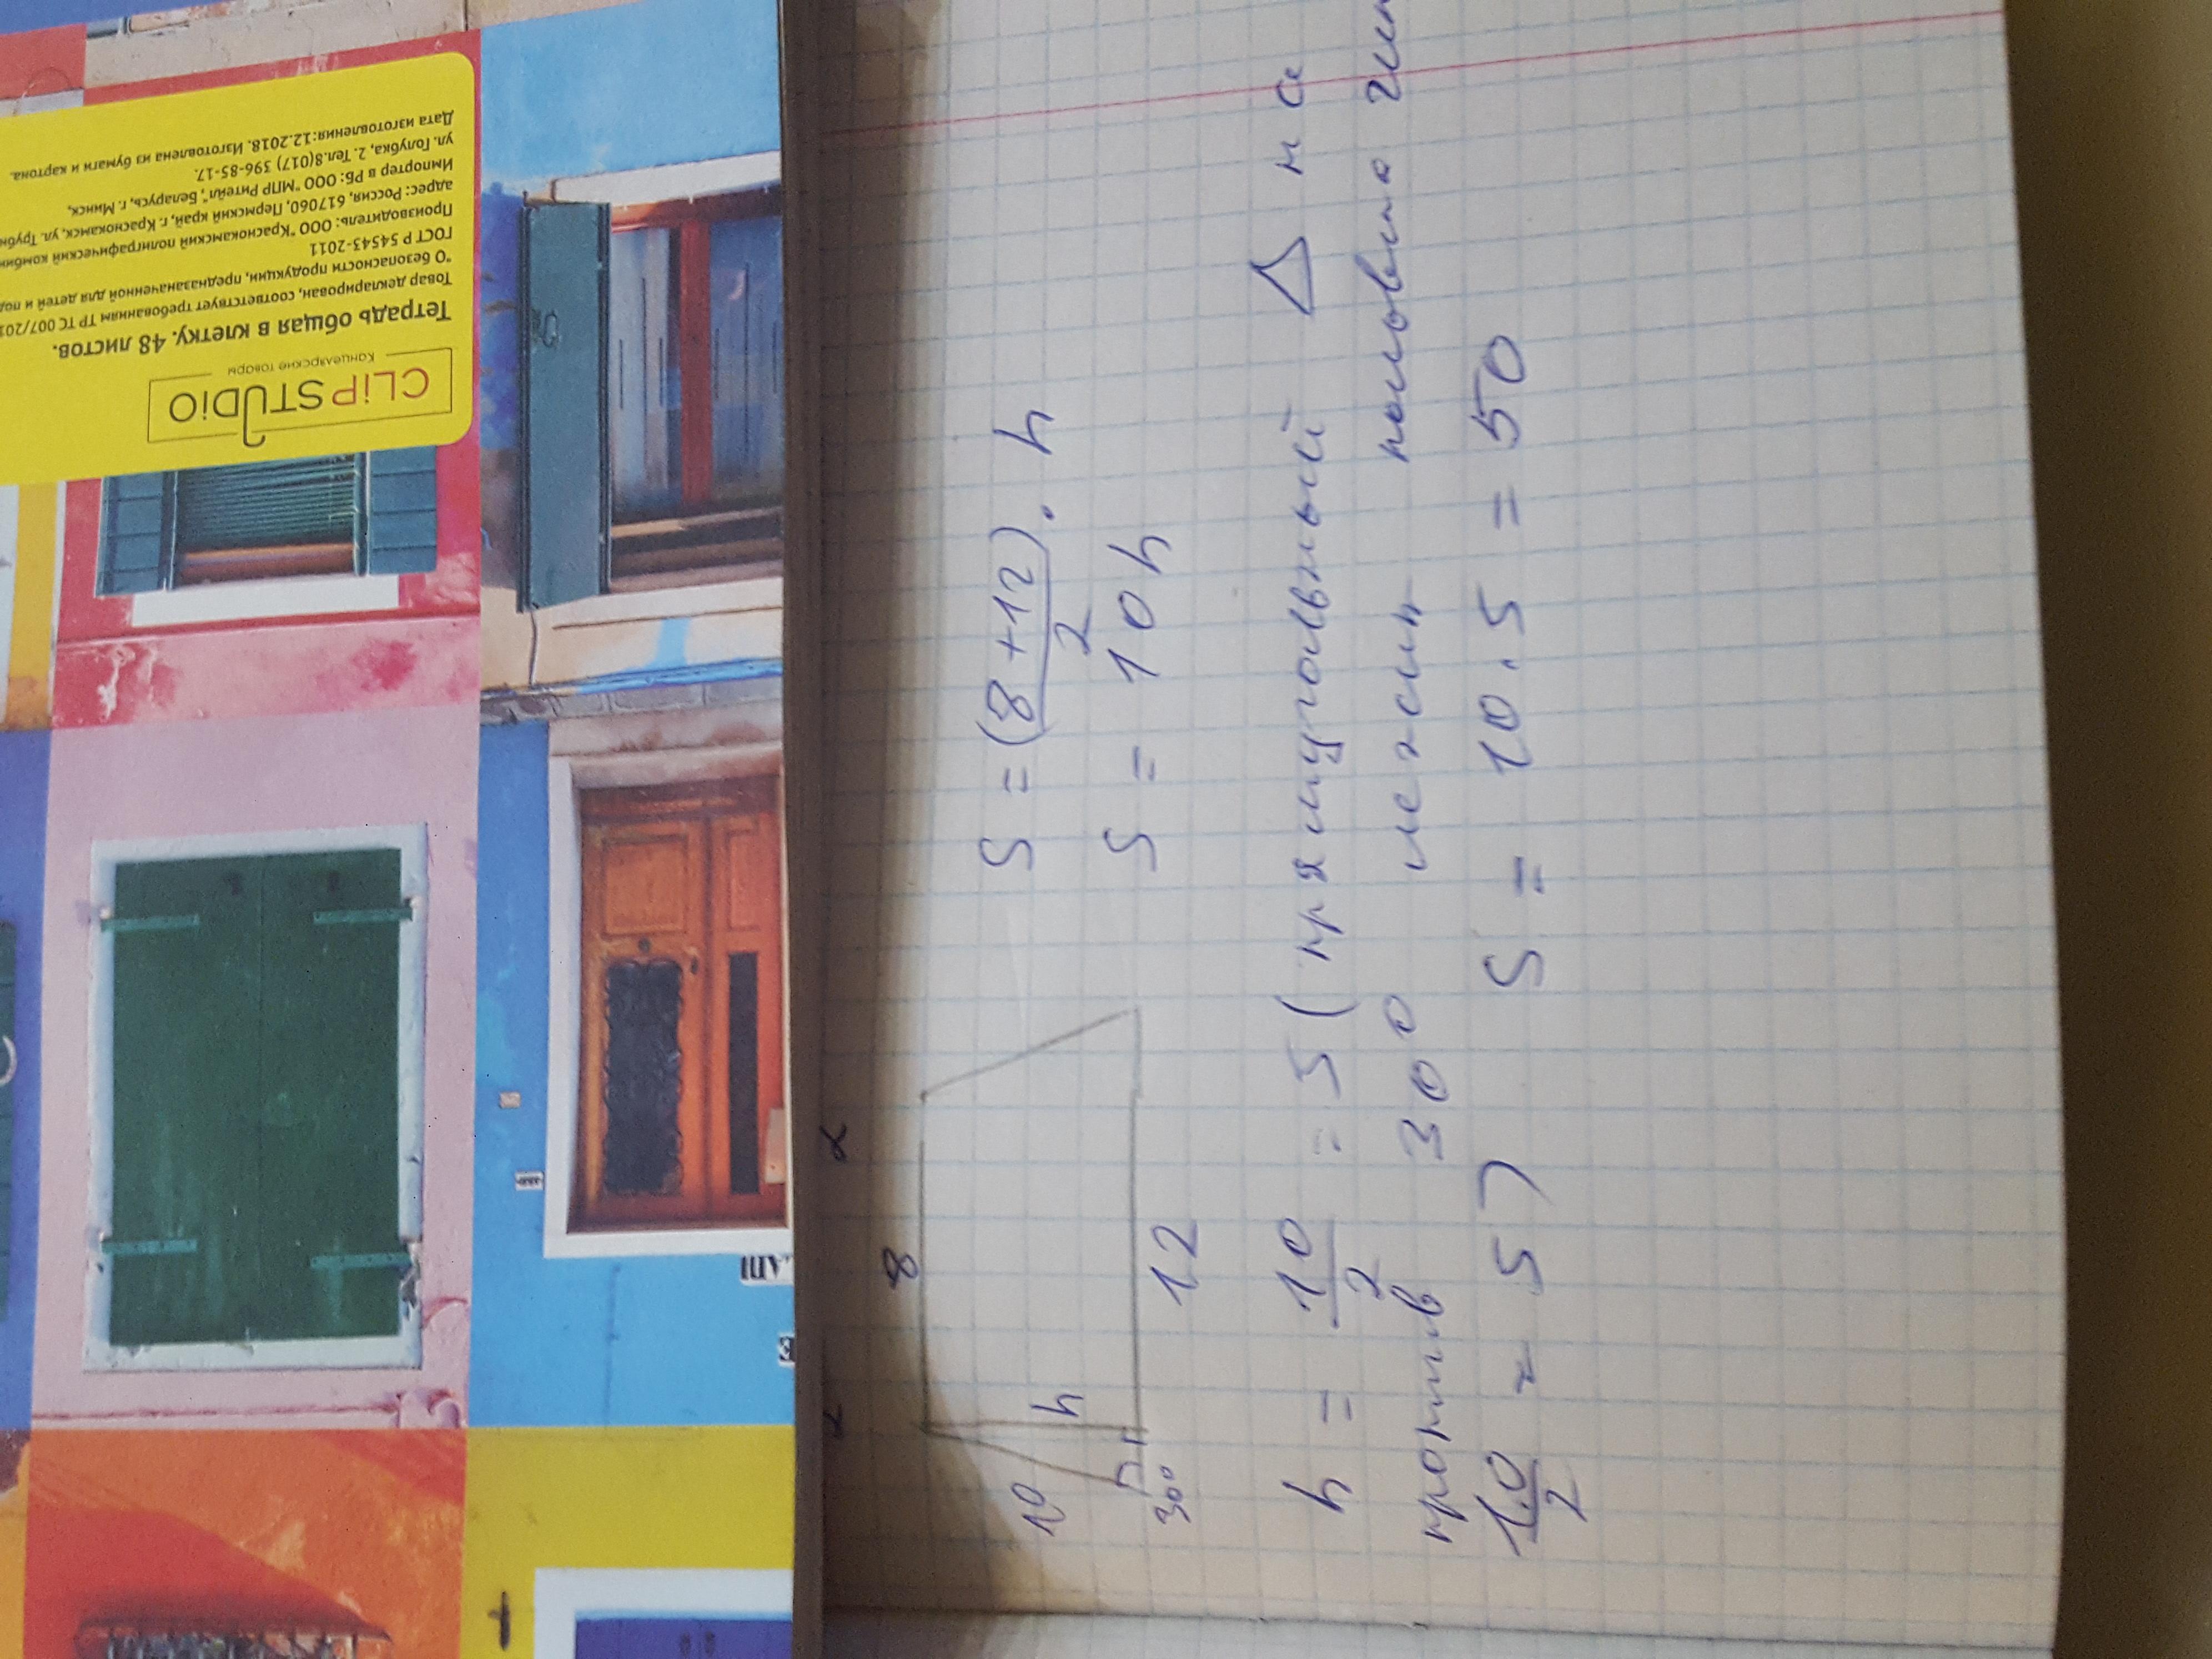 CLiPSTUDiO
Канцелярские товары
Тетрадь общая в клетку. 48 листов.
Товар декларирован, соответствует требованиям ТР ТС 007/201
"О безопасности продукции, предназначенной для детей и под
ГОСТ Р 54543-2011
Производитель: ООО "Краснокамский полиграфический комбин
адрес: Россия, 617060, Пермский край, г. Краснокамск, ул. Трубн
Импортер в РБ: ООО "МПР Ритейл", Беларусь, г. Минск,
ул. Голубка, 2. Тел.8(017) 396-85-17.
Дата изготовления:12.2018. Изготовлена из бумаги и картона.
8
10
h
30°
12
S = (8+12)/2 · h
S = 10h
h = 10/2 = 5 (прямоугольный △ и с
против 30° лежит половина гип
10/2 = 5) S = 10.5 = 50